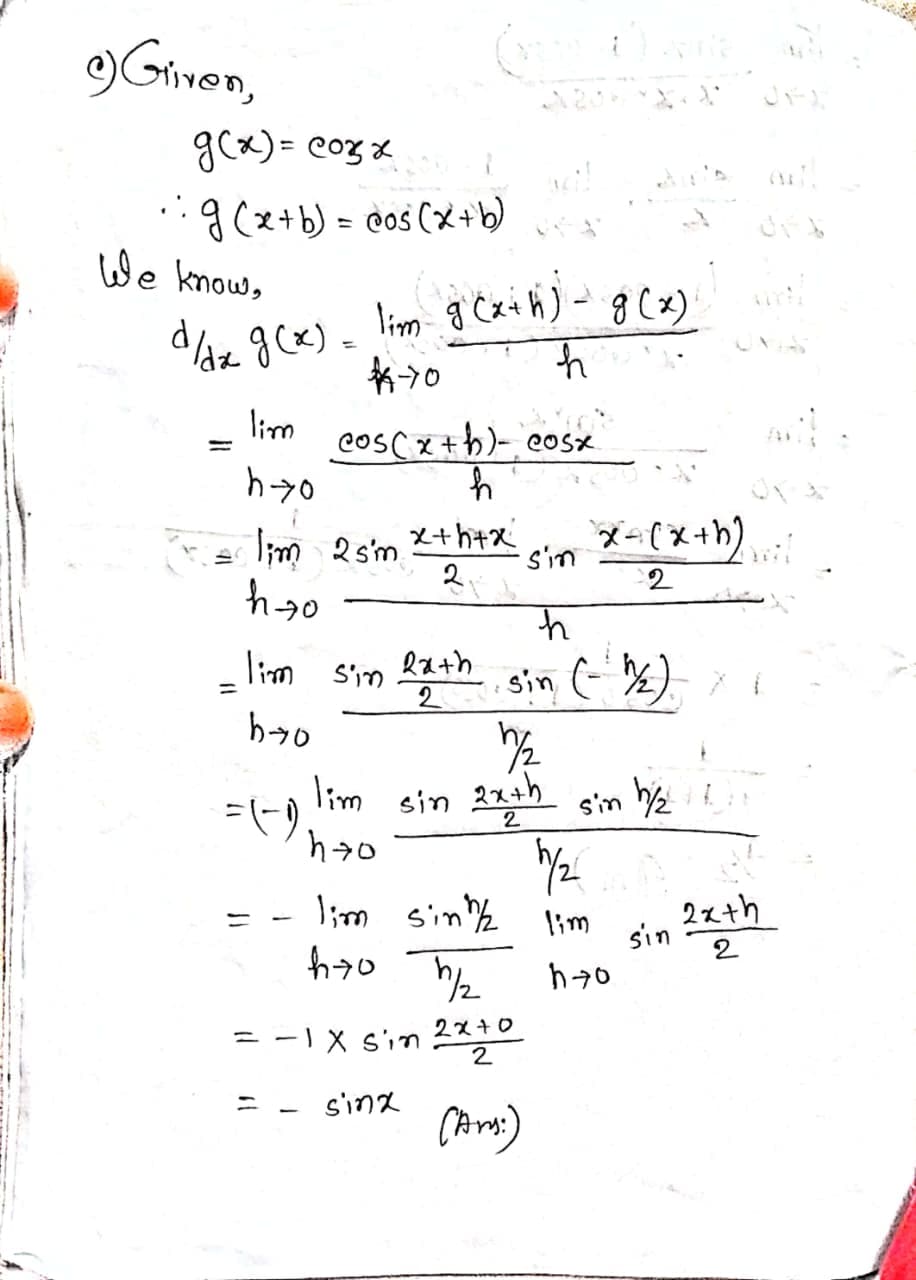 c) Given,
g(x) = cosx
∴ g(x+h) = cos(x+h)
We know,
d/dx g(x) = lim h→0 g(x+h) - g(x) / h
= lim h→0 cos(x+h) - cosx / h
= lim h→0 2 sin x+h+x / 2 sin x-(x+h) / 2 / h
= lim h→0 sin 2x+h / 2 . sin (- h/2) / h/2
= (-1) lim h→0 sin 2x+h / 2 sin h/2 / h/2
= - lim h→0 sin h/2 / h/2 lim h→0 sin 2x+h / 2
= -1 X sin 2x+0 / 2
= - sinx (Ans:)